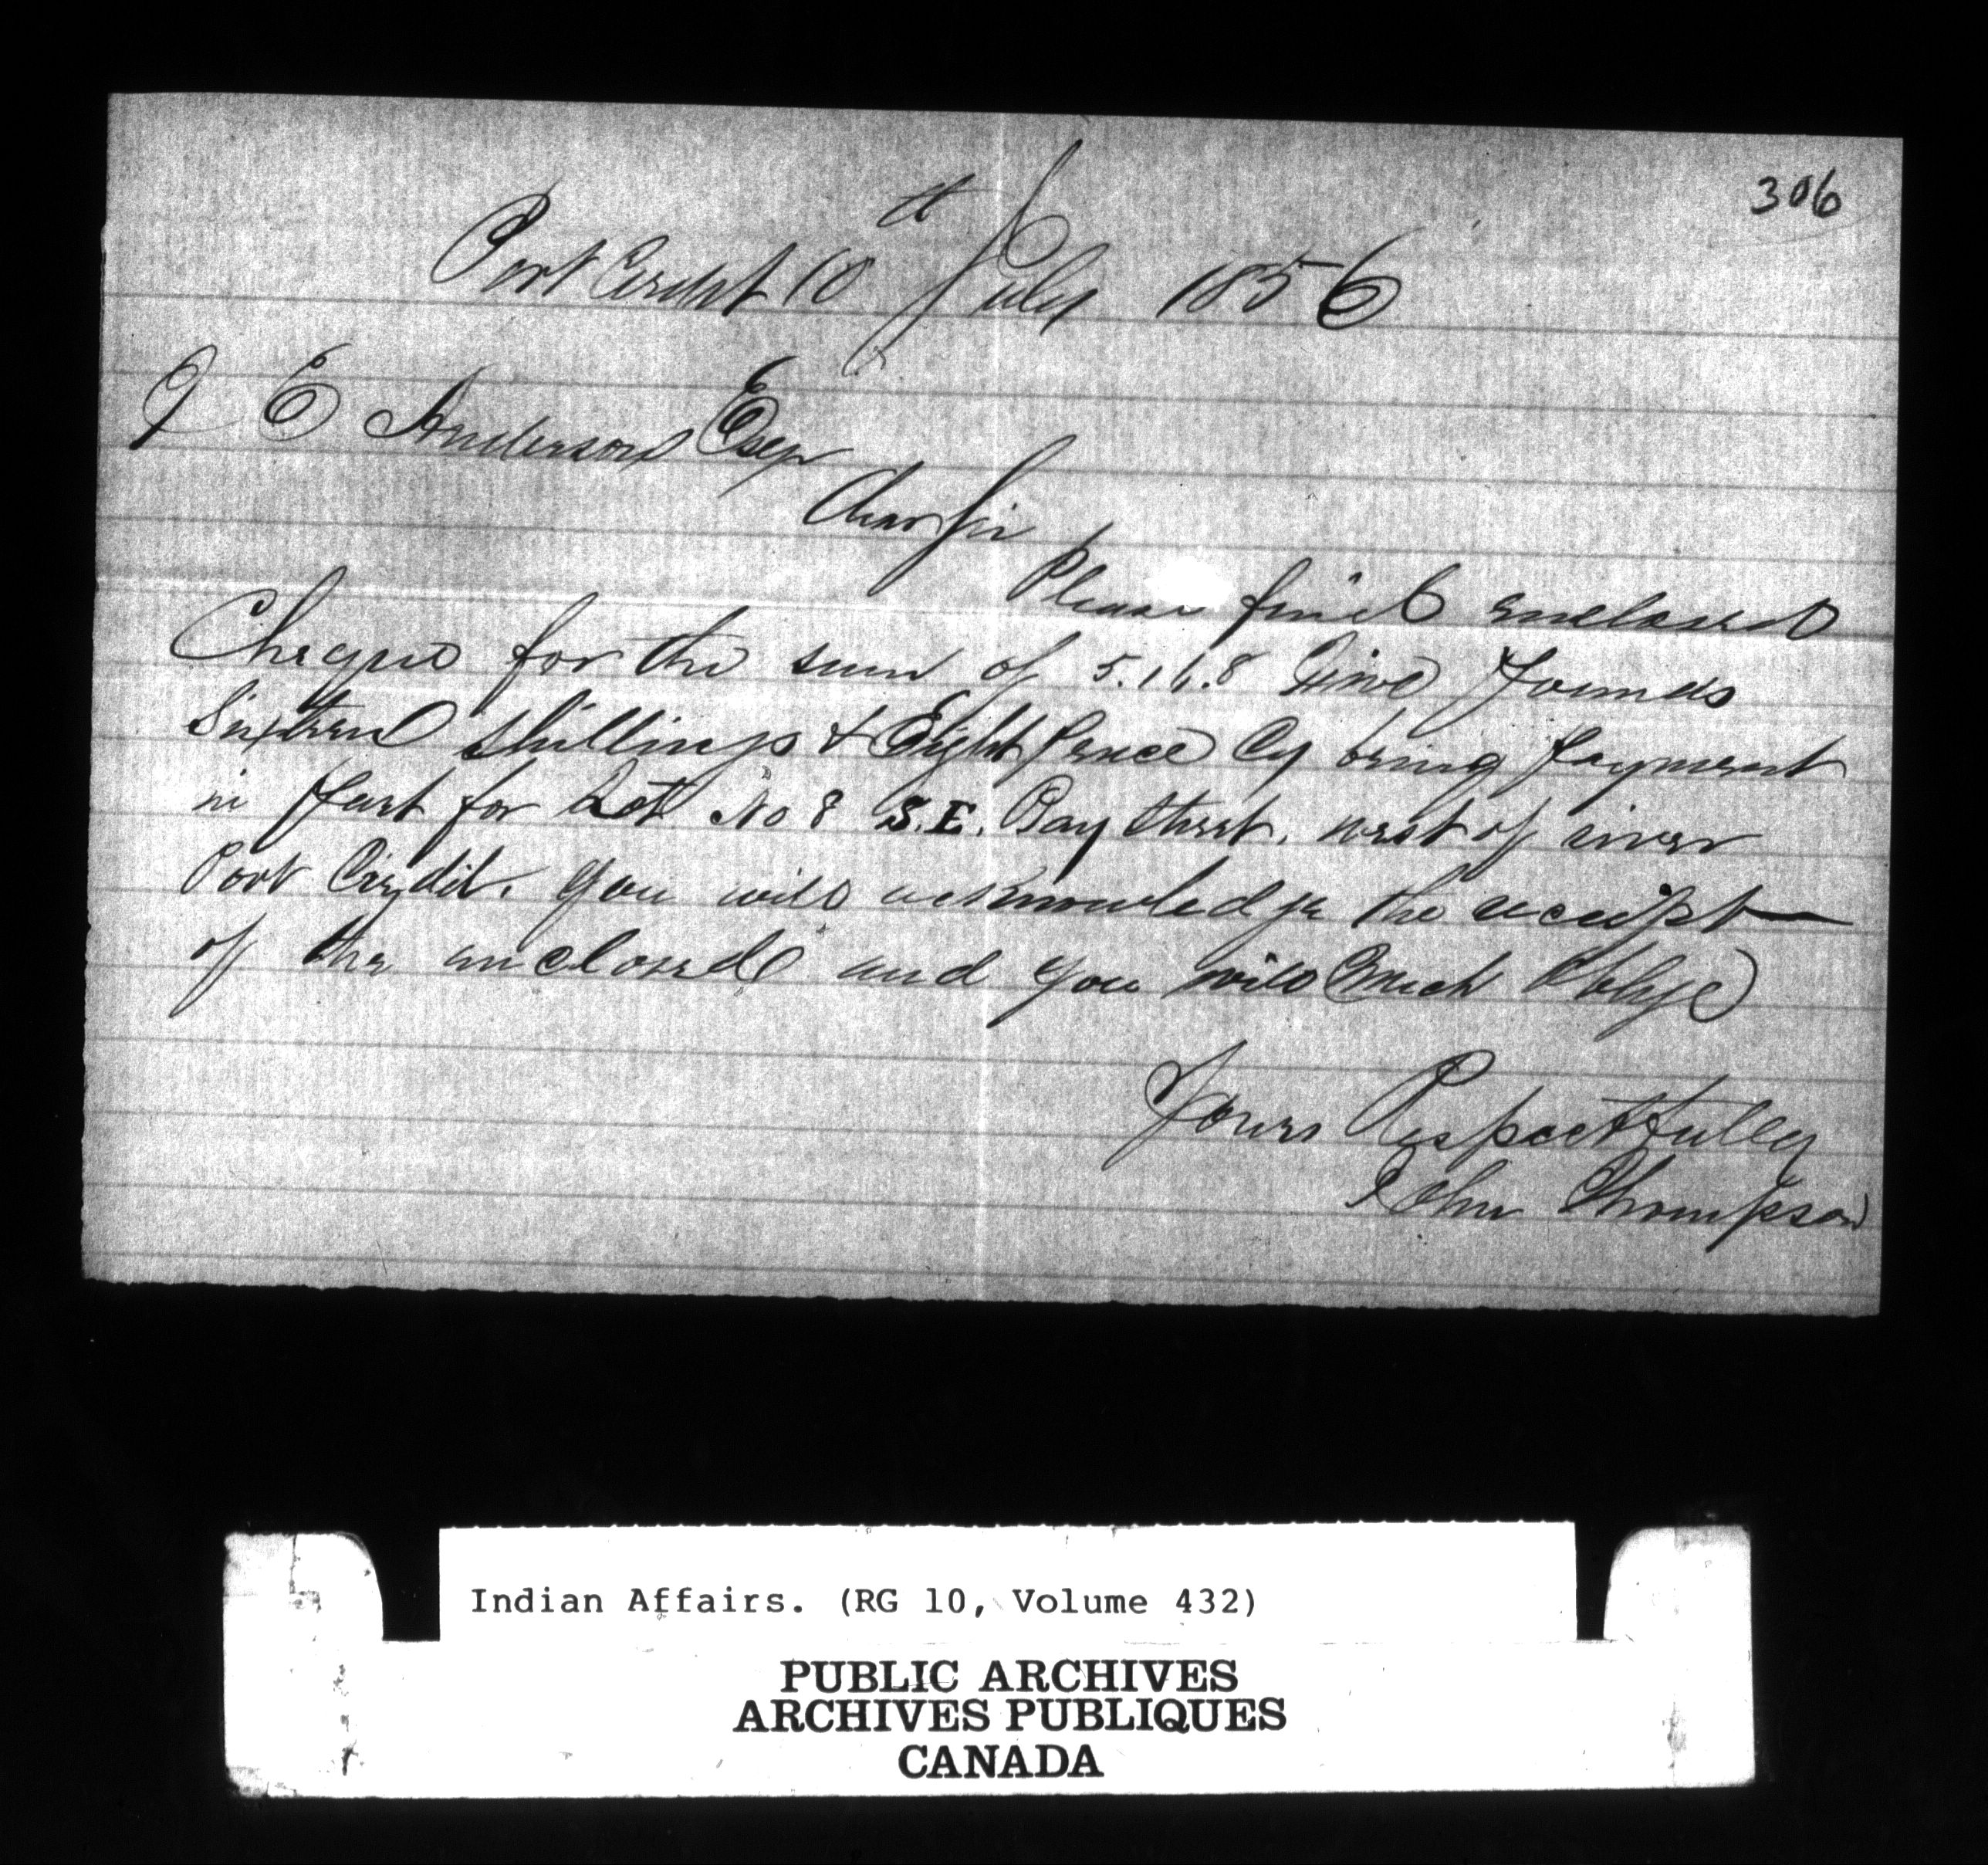 306
Port Credit 10th July 1856
J E Anderson Esqr
Dear Sir
Please find enclosed
Cheque for the sum of 5.16.8 Five Pounds
Sixteen Shillings & Eight Pence Cy being Payment
in Part for Lot No 8 S.E. Bay Street. west of river
Port Credit. You will acknowledge the receipt
of the enclosed and you will Much Oblige
Yours Respectfully
John Thompson
Indian Affairs. (RG 10, Volume 432)
PUBLIC ARCHIVES
ARCHIVES PUBLIQUES
CANADA